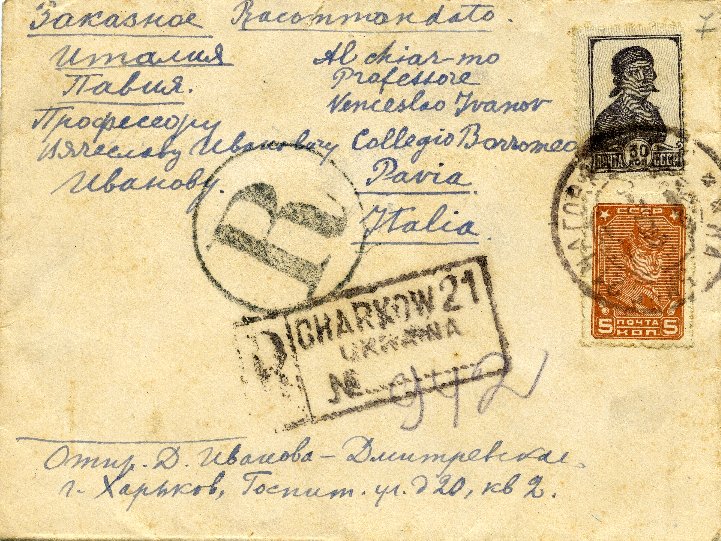 Заказное Racommandato.
Италия
Павия.
Профессору
Вячеславу Ивановичу
Иванову.
Al chiar-mo
Professore
Venceslao Ivanov
Collegio Borromeo
Pavia
Italia
7
30
ПОЧТА СССР
СССР
5 ПОЧТА 5
КОП.
R
R CHARKOW 21
UKRAINA
№ 942
Отпр. Д. Иванова-Дмитревская.
г. Харьков, Госпит. ул. д 20, кв 2.